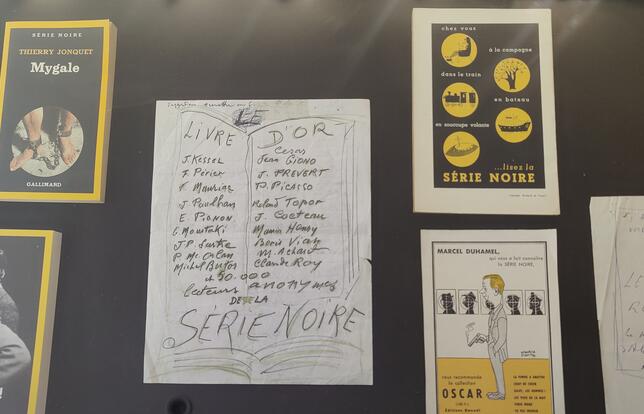 SÉRIE NOIRE
THIERRY JONQUET
Mygale
GALLIMARD
!
LE
LIVRE D'OR
J. Kessel
F. Périer
F. Mauriac
J. Paulhan
E. Pignon
G. Moustaki
J.P. Sartre
P. Mc Orlan
Michel Butor
Cesar
Jean Giono
J. PREVERT
P. Picasso
Roland Topor
J. Cocteau
Boris Vian
M. Achard
Claude Roy
et 50.000
lecteurs anonymes
DE LA
SÉRIE NOIRE
chez vous
à la campagne
dans le train
en bateau
en soucoupe volante
...lisez la
SÉRIE NOIRE
MARCEL DUHAMEL,
qui vous a fait connaître
la SÉRIE NOIRE,
vous recommande
la collection
OSCAR
Éditions Denoël